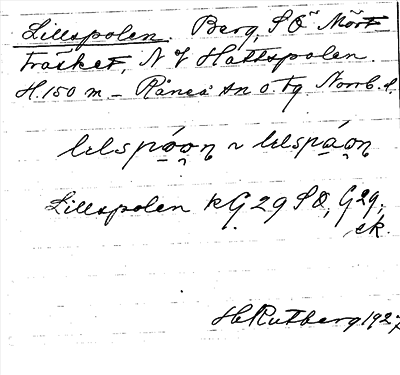 Lillspolen. Berg, S Ö Mört
träsket, N V Hattspolen.
H. 150 m – Råneå sn o. tg Norrb. l.
lɩlspóo̯ṇ ~ lɩlspáo̯ṇ
Lillspolen kG 29 SO, G 29,
ek.
H Rutberg 1927